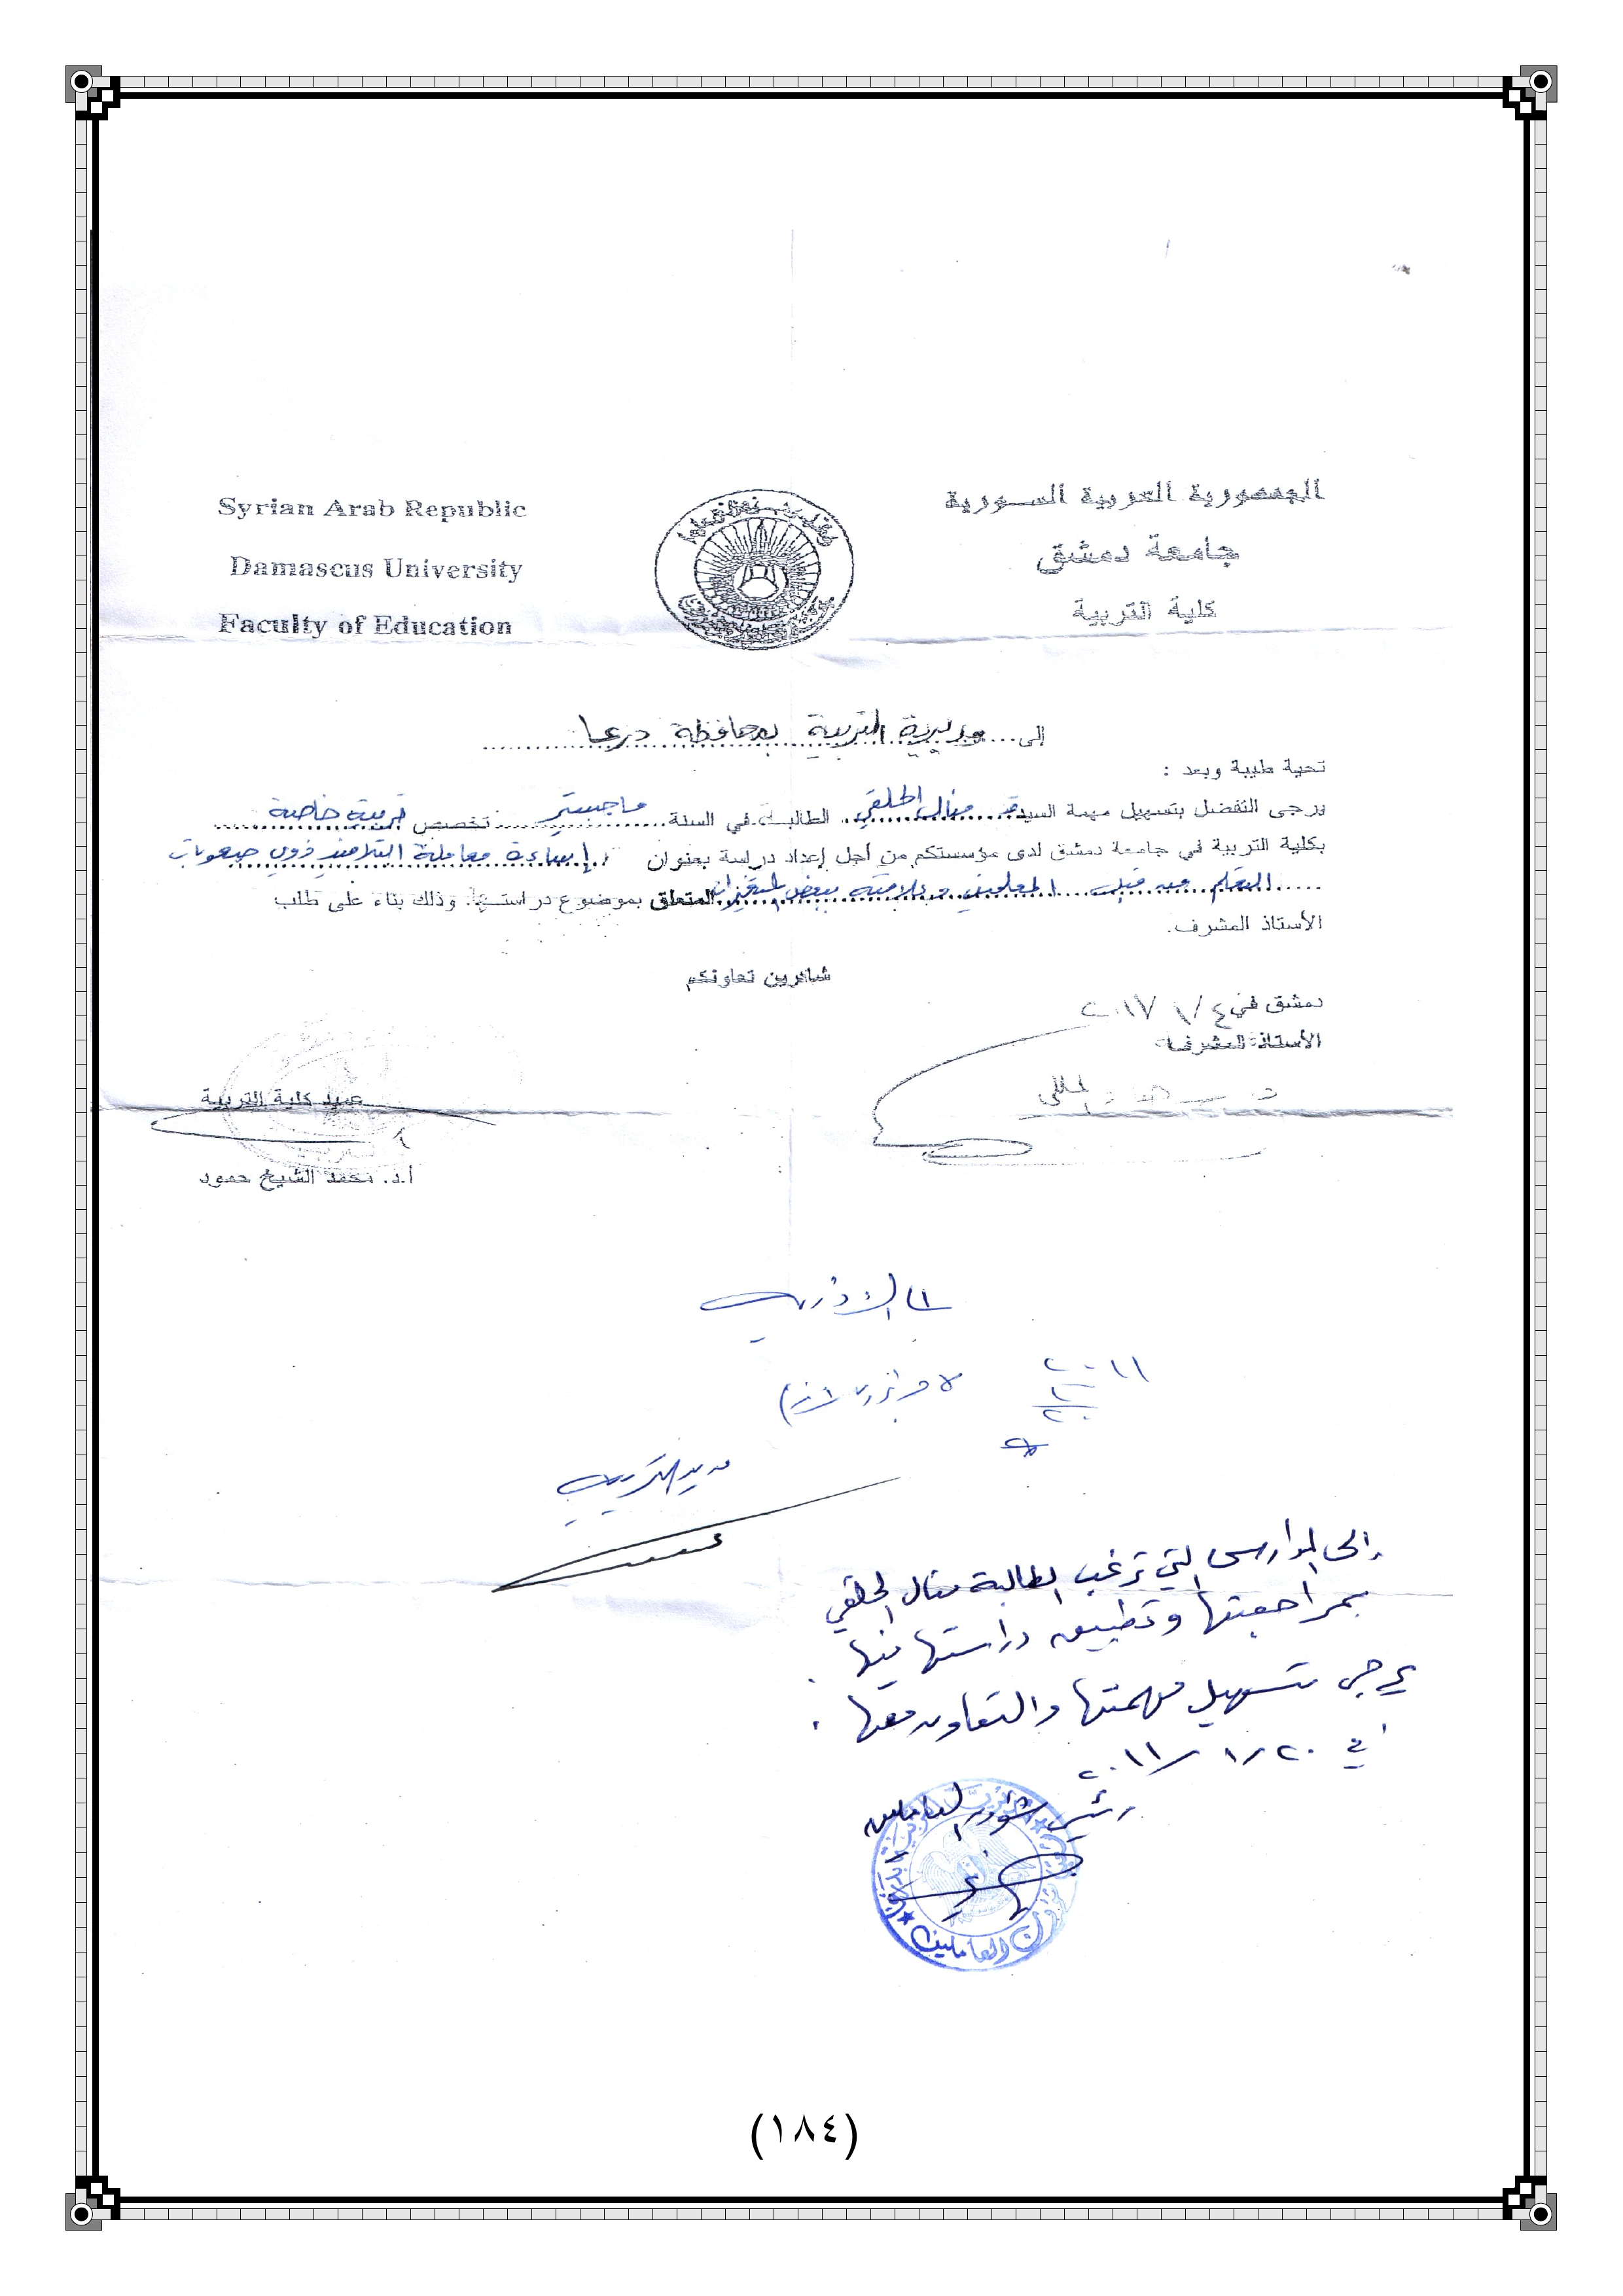 الجمهورية العربية السورية
جامعة دمشق
كلية التربية
Syrian Arab Republic
Damascus University
Faculty of Education
إلى.... مديرية التربية بمحافظة درعا
تحية طيبة وبعد :
يرجى التفضل بتسهيل مهمة السيدة منال الحلقي الطالبة في السنة ماجستير تخصص تربية خاصة
بكلية التربية في جامعة دمشق لدى مؤسستكم من أجل إعداد دراسة بعنوان إساءة معاملة التلاميذ ذوي صعوبات
التعلم من قبل المعلمين وعلاقته ببعض المتغيرات المتعلق بموضوع دراستها. وذلك بناء على طلب
الأستاذ المشرف.
شاكرين تعاونكم
دمشق في
الأستاذ المشرف
عميد كلية التربية
أ.د. محمد الشيخ حمود
مدير التربية
إلى المدارس التي ترغب الطالبة منال الحلقي
بمراجعتها وتطبيق دراستها فيها .
يرجى تسهيل مهمتها والتعاون معها .
في ٢٠/١/٢٠١١
رئيس شؤون العاملين
شؤون العاملين
(١٨٤)